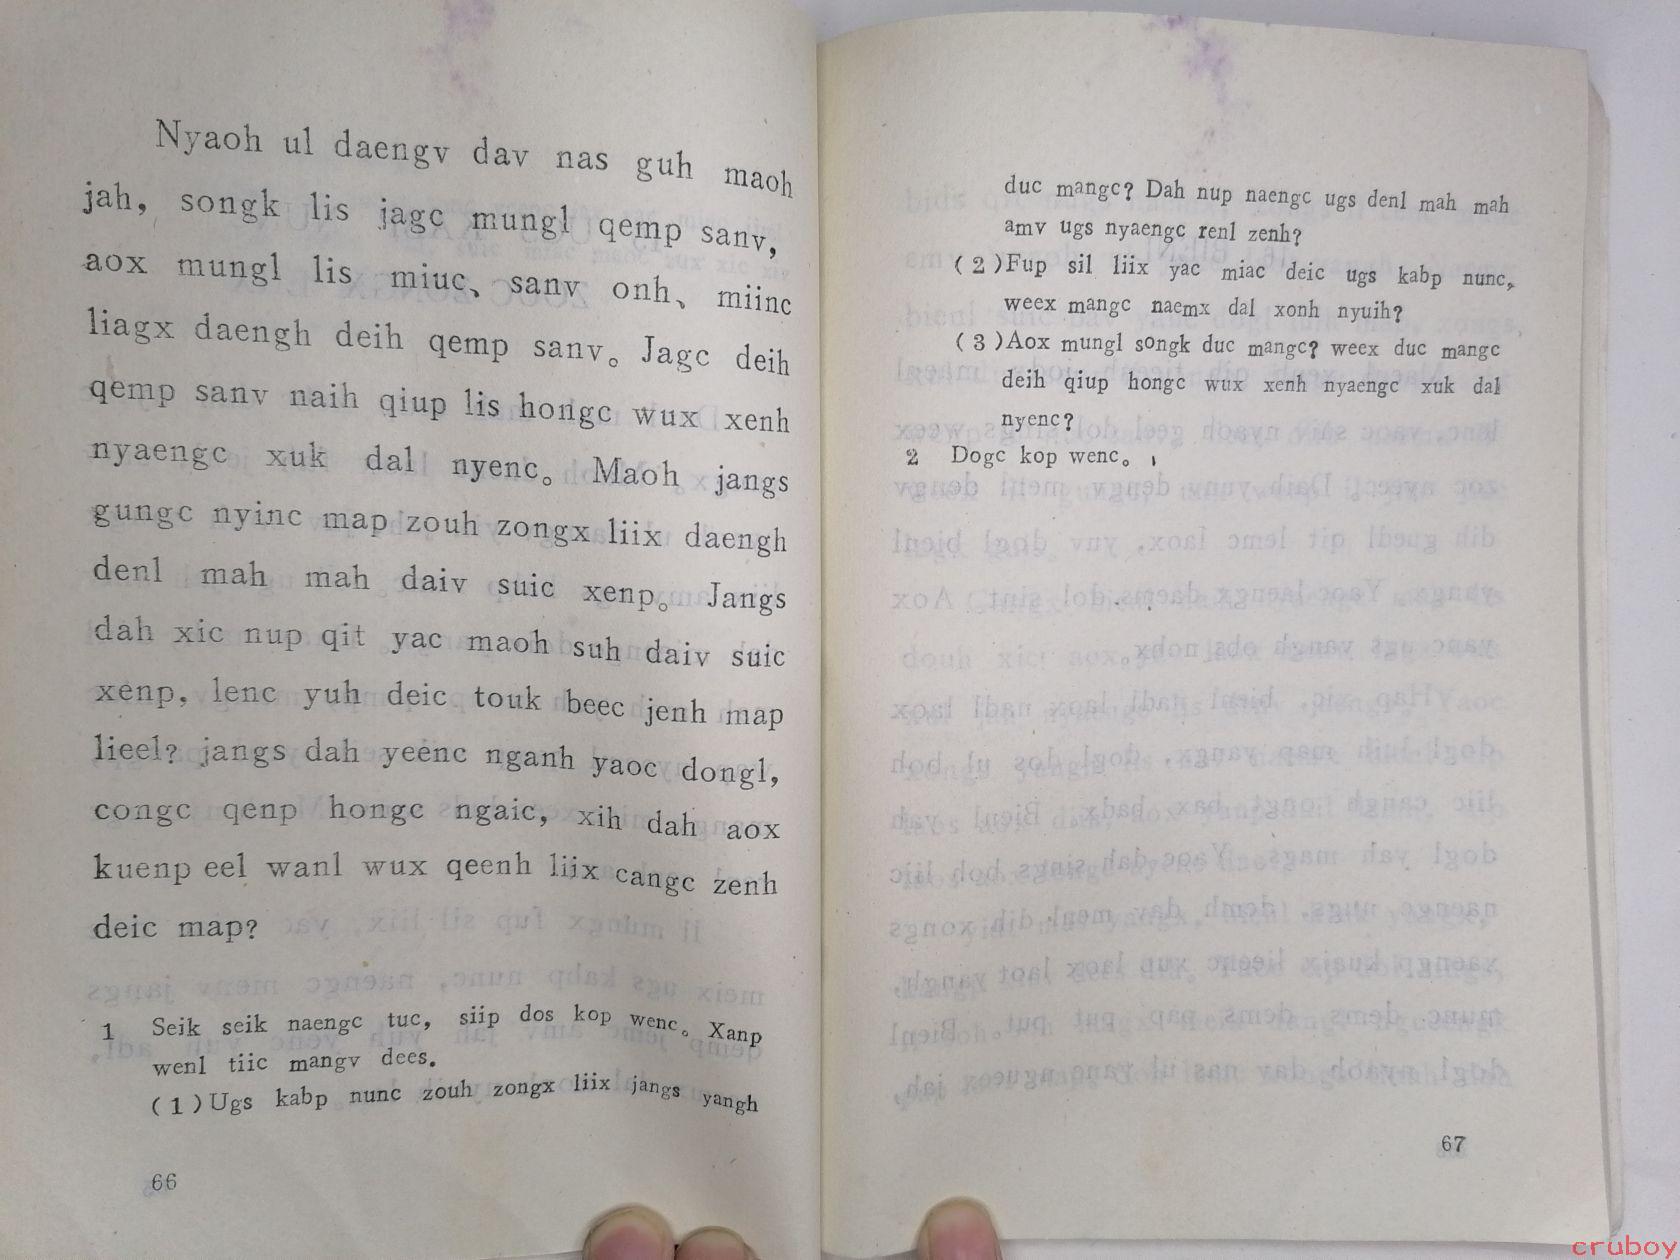 Nyaoh ul daengv dav nas guh maoh
jah, songk lis jagc mungl qemp sanv,
aox mungl lis miuc、sanv onh、miinc
liagx daengh deih qemp sanv。Jagc deih
qemp sanv naih qiup lis hongc wux xenh
nyaengc xuk dal nyenc。Maoh jangs
gungc nyinc map zouh zongx liix daengh
denl mah mah daiv suic xenp。Jangs
dah xic nup qit yac maoh suh daiv suic
xenp, lenc yuh deic touk beec jenh map
lieel? jangs dah yeenc nganh yaoc dongl,
congc qenp hongc ngaic, xih dah aox
kuenp eel wanl wux qeenh liix cangc zenh
deic map?
1 Seik seik naengc tuc, siip dos kop wenc。Xanp
wenl tiic mangv dees.
(1)Ugs kabp nunc zouh zongx liix jangs yangh
66
duc mangc? Dah nup naengc ugs denl mah mah
amv ugs nyaengc renl zenh?
(2)Fup sil liix yac miac deic ugs kabp nunc,
weex mangc naemx dal xonh nyuih?
(3)Aox mungl songk duc mangc? weex duc mangc
deih qiup hongc wux xenh nyaengc xuk dal
nyenc?
2 Dogc kop wenc。
67
cruboy